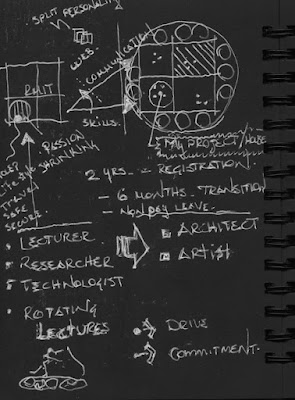 SPLIT PERSONALITY
WEB
COMMUNICATION
RMIT
SKILLS
PASSION
SHRINKING
2 YRS - REGISTRATION
- 6 MONTHS TRANSITION
- NON PAY LEAVE
LECTURER
RESEARCHER
TECHNOLOGIST
ROTATING
LECTURES
ARCHITECT
ARTIST
DRIVE
COMMITMENT.